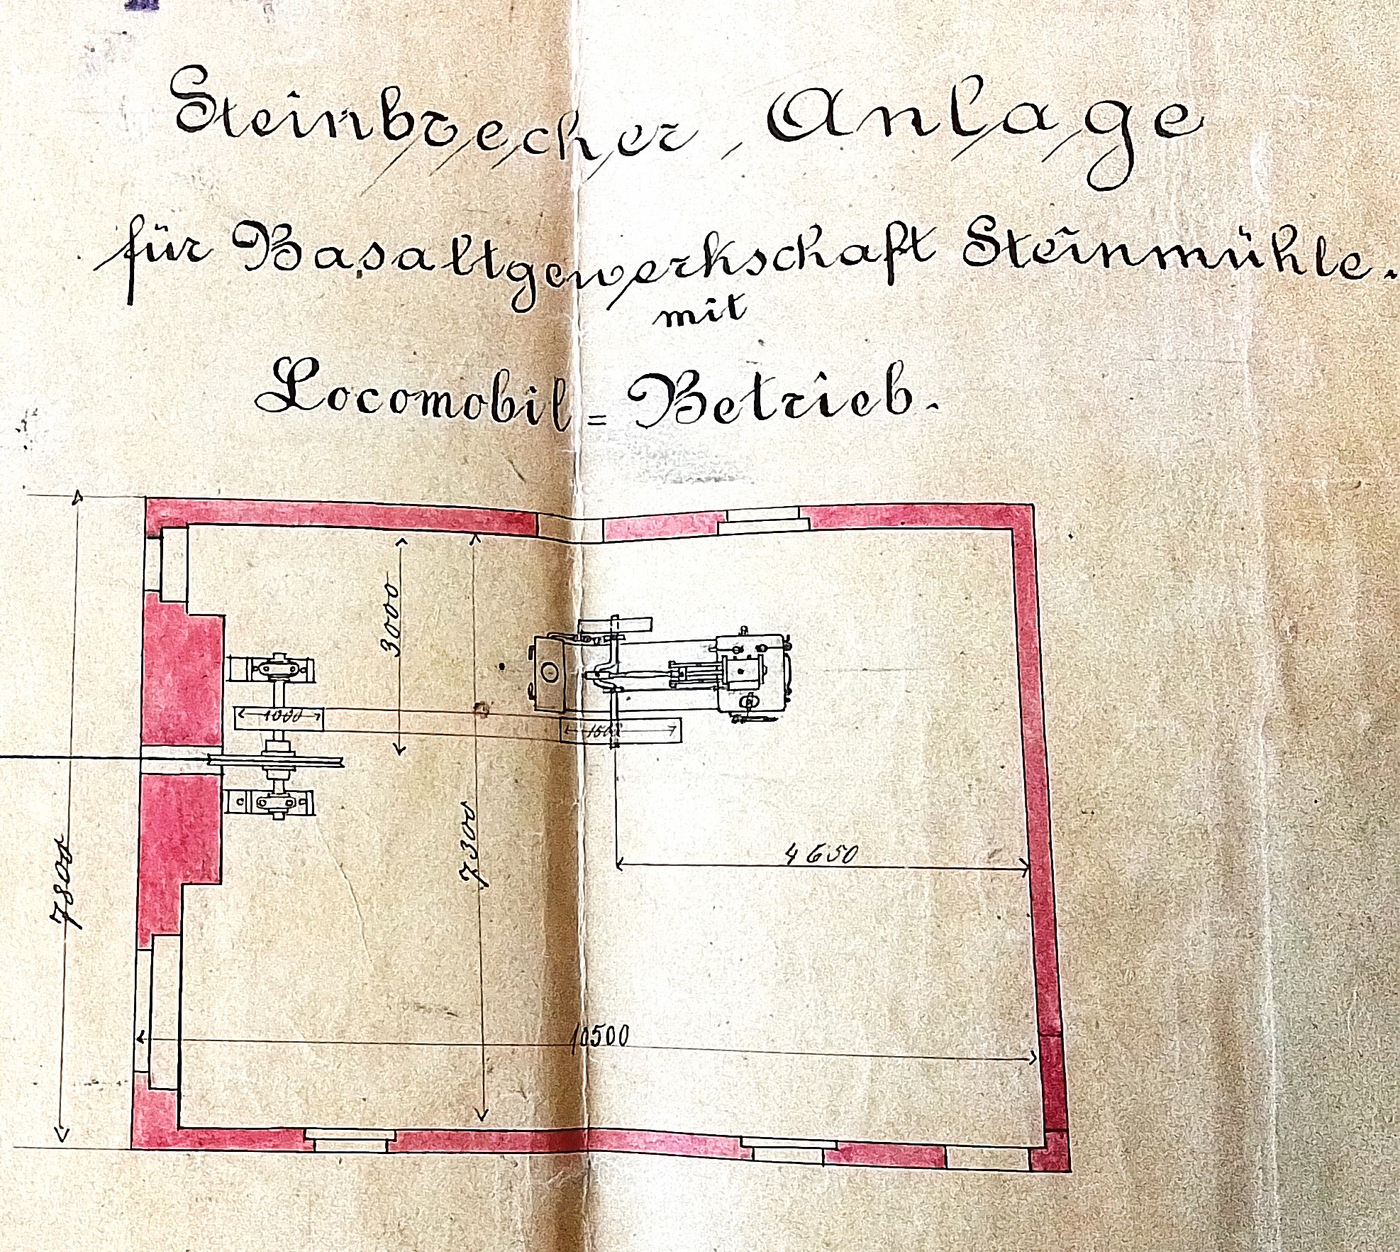 Steinbrecher, Anlage
für Basaltgewerkschaft Steinmühle.
mit
Locomobil = Betrieb.
3000
1000
7800
7300
4650
10500